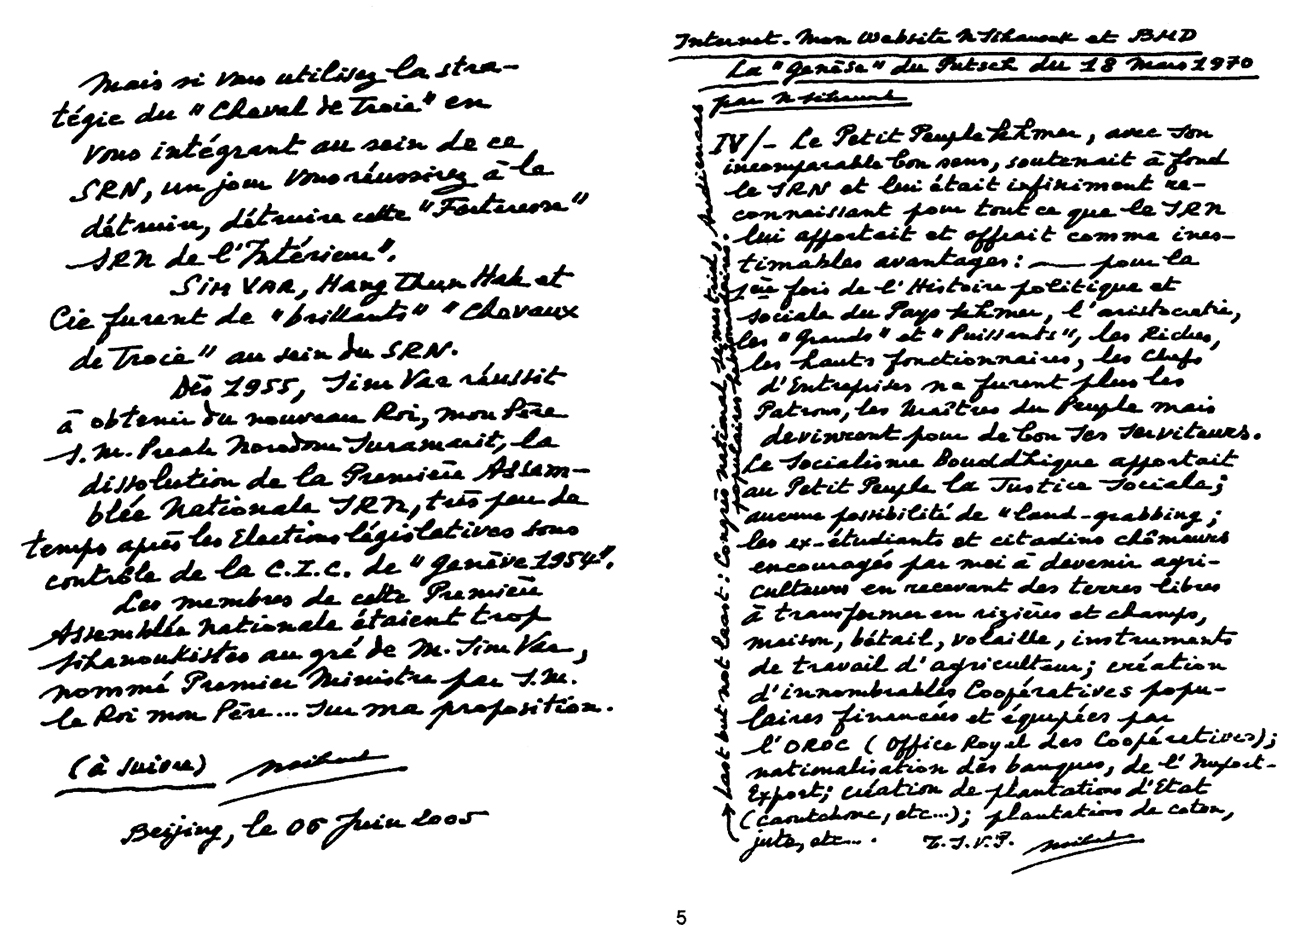 Mais si vous utilisez la stra-
tégie du "Cheval de Troie" en
vous intégrant au sein de ce
SRN, un jour vous réussirez à le
détruire, détruire cette "Forteresse"
SRN de l'Intérieur".
SIM VAR, Hang Thun Hak et
Cie furent de "brillants" "Chevaux
de Troie" au sein du SRN.
Dès 1955, Sim Var réussit
à obtenir du nouveau Roi, mon Père
S.M. Preah Norodom Suramarit, la
dissolution de la Première Assem-
blée Nationale SRN, très peu de
temps après les Elections législatives sous
contrôle de la C.I.C. de "Genève 1954".
Les membres de cette Première
Assemblée Nationale étaient trop
sihanoukistes au gré de M. Sim Var,
nommé Premier Ministre par S.M.
le Roi mon Père... Sur ma proposition.
(à suivre)
Beijing, le 06 Juin 2005
Internet - Mon Website N Sihanouk et BMD
La "Genèse" du Putsch du 18 Mars 1970
par N Sihanouk
IV/- Le Petit Peuple khmer, avec son
incomparable bon sens, soutenait à fond
le SRN et lui était infiniment re-
connaissant pour tout ce que le SRN
lui apportait et offrait comme ines-
timables avantages : — pour la
1ère fois de l'Histoire politique et
sociale du Pays khmer, l'aristocratie,
les "Grands" et "Puissants", les Riches,
les hauts fonctionnaires, les Chefs
d'Entreprises ne furent plus les
Patrons, les Maîtres du Peuple mais
devinrent pour de bon ses serviteurs.
Le Socialisme Bouddhique apportait
au Petit Peuple la Justice Sociale ;
aucune possibilité de "land-grabbing ;
les ex-étudiants et citadins chômeurs
encouragés par moi à devenir agri-
culteurs en recevant des terres libres
à transformer en rizières et champs,
maison, bétail, volaille, instruments
de travail d'agriculteur ; création
d'innombrables Coopératives popu-
laires financées et équipées par
l'OROC (Office Royal des Coopératives) ;
nationalisation des banques, de l'Import-
Export ; création de plantations d'Etat
(caoutchouc, etc...) ; plantations de coton,
jute, etc... . T.S.V.P.
→ Last but not least : Congrès national semestriel, Audiences
populaires hebdomadaires.
5